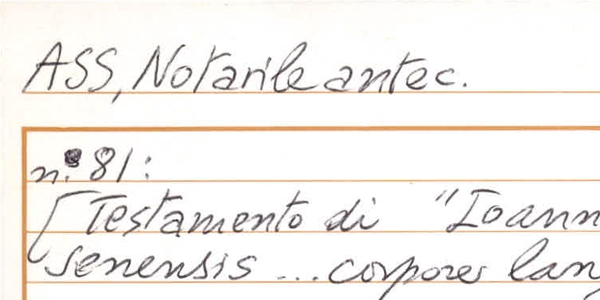 ASS, Notarile antec.
n.° 81:
[Testamento di "Ioann
senensis ... corpore lang